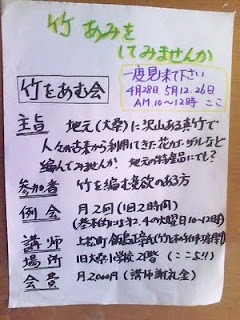 竹あみを
してみませんか
一度見に来て下さい
4月28日 5月12.26日
AM.10~12時 ここ
竹をあむ会
主旨 地元(大桑)に沢山ある真竹で
人々が古来から利用してきた花カゴ、ザルなど
編んでみませんか 地元の特産品にでも?
参加者 竹を編む意欲のある方
例会 月2回(1日2時間)
(基本的には第2.4の火曜日10~12時)
講師 上松町
場所 旧大桑小学校2階 (ここよ!!)
会費 月2,000円(講師謝礼金)